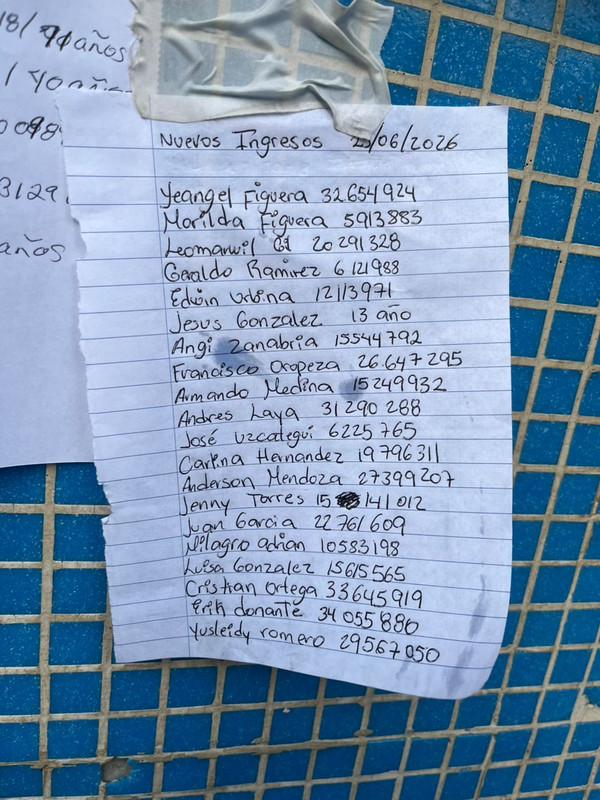 18/ 71 años
/ 40 años
3129
años
Nuevos Ingresos /06/2026
Yeangel Figuera 32.654924
Marilda Figuera 5913883
Leomarwil 20291328
Geraldo Ramirez 6121988
Edwin Urbina 12113971
Jesus Gonzalez 13 año
Angi Zanabria 15544792
Francisco Oropeza 26.647295
Armando Medina 15249932
Andres Laya 31290288
José Uzcategui 6225765
Carlina Hernandez 19796311
Anderson Mendoza 27399207
Jenny Torres 15 141012
Juan Garcia 22761609
Milagro adrian 10583198
Luisa Gonzalez 15615565
Cristian Ortega 33645919
Erik donante 34055886
Yusleidy romero 29567050